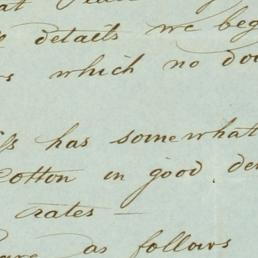 at
details we beg
which no dou
has somewhat
Cotton in good den
rates —
are as follows